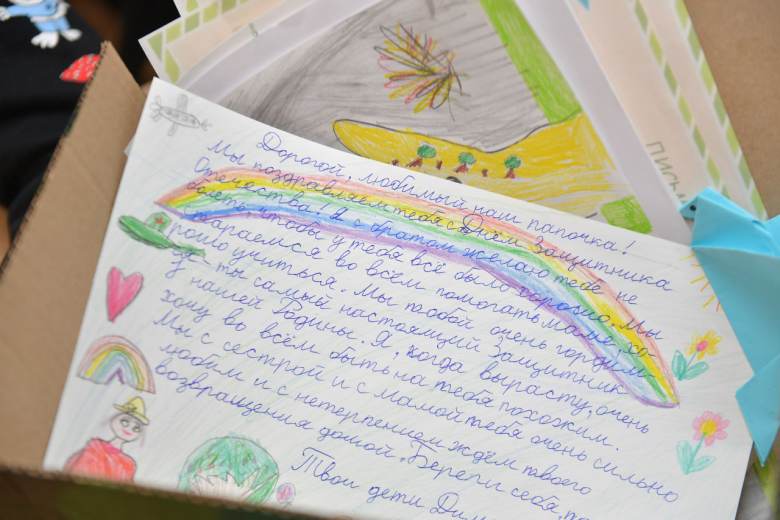 Дорогой, любимый наш папочка!
Мы поздравляем тебя с Днём Защитника
Отечества! Я с братом желаю тебе не
болеть, чтобы у тебя всё было хорошо. Мы
стараемся во всём помогать маме, хо-
рошо учиться. Мы тобой очень гордим
ты самый настоящий Защитник
у нашей Родины. Я, когда вырасту, очень
хочу во всём быть на тебя похожим.
Мы с сестрой и с мамой тебя очень сильно
любим и с нетерпением ждём твоего
возвращения домой. Береги себя,
Твои дети